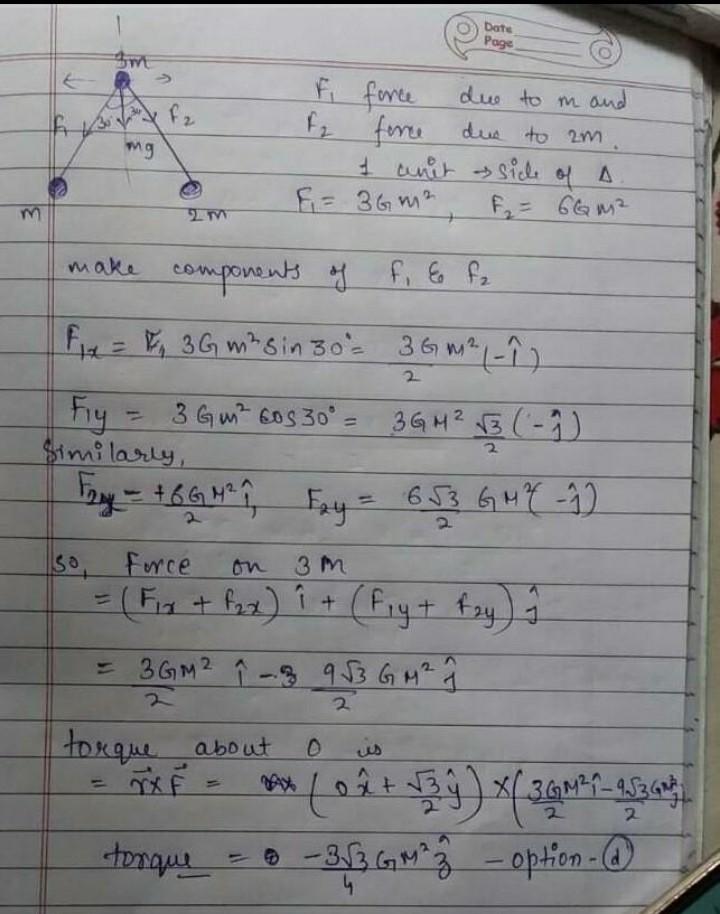 Date
Page
3m
F₁ 30° 30° F₂
mg
m 2m
F₁ force due to m and
F₂ force due to 2m.
1 unit → side of Δ.
F₁ = 3Gm², F₂ = 6Gm²
make components of F₁ & F₂
F₁ₓ = 3Gm² Sin 30° = 3Gm²/2 (-î)
F₁y = 3Gm² cos 30° = 3GM² √3/2 (-ĵ)
Similarly,
= +6GM²/2 î, F₂y = 6√3/2 GM² (-ĵ)
so, Force on 3M
= (F₁ₓ + F₂ₓ) î + (F₁y + F₂y) ĵ
= 3GM²/2 î - 9√3 GM²/2 ĵ
torque about O is
= r⃗ × F⃗ = (0x̂ + √3/2 ŷ) × (3GM²/2 î - 9√3GM²/2 ĵ)
torque = -3√3 GM²/4 ẑ - option - (d)